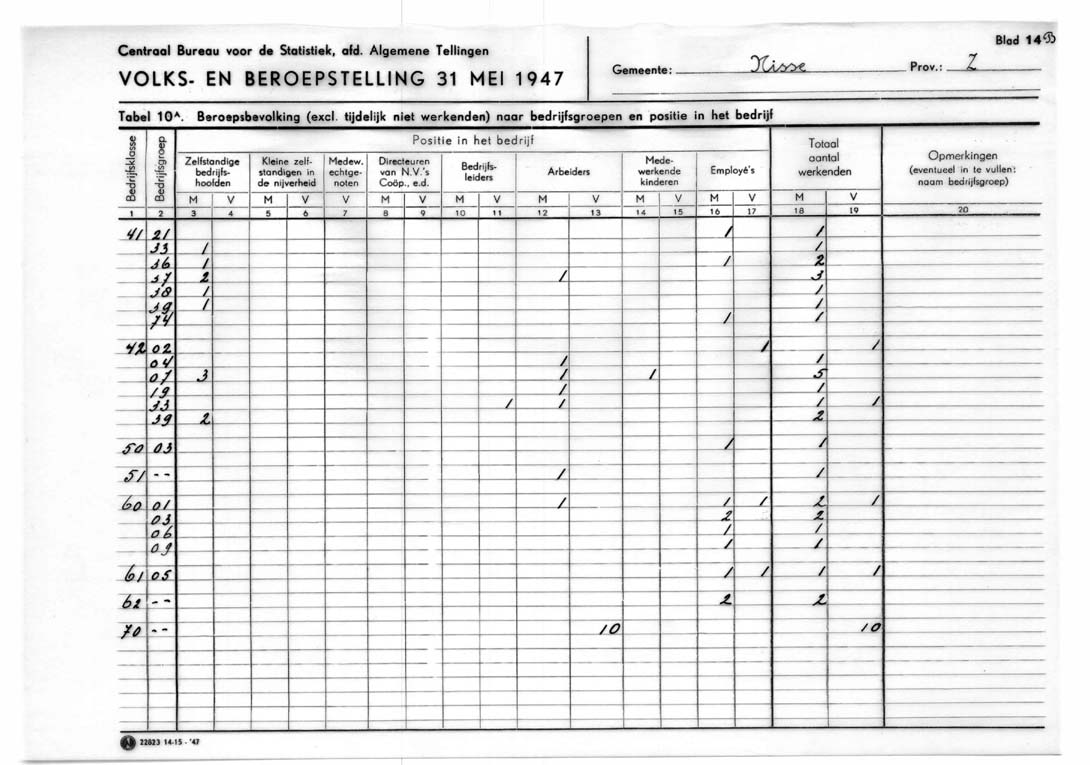 Blad 14
Centraal Bureau voor de Statistiek, afd. Algemene Tellingen
VOLKS- EN BEROEPSTELLING 31 MEI 1947
Gemeente: Nisse Prov.: Z
Tabel 10A. Beroepsbevolking (excl. tijdelijk niet werkenden) naar bedrijfsgroepen en positie in het bedrijf
Bedrijfsklasse
Bedrijfsgroep
Positie in het bedrijf
Zelfstandige bedrijfs-hoofden
Kleine zelf-standigen in de nijverheid
Medew. echtge-noten
Directeuren van N.V.'s Coöp., e.d.
Bedrijfs-leiders
Arbeiders
Mede-werkende kinderen
Employé's
Totaal aantal werkenden
Opmerkingen (eventueel in te vullen: naam bedrijfsgroep)
M V M V V M V M V M V M V M V M V
1 2 3 4 5 6 7 8 9 10 11 12 13 14 15 16 17 18 19 20
41 21 1 1
33 1 1
36 1 1 2
37 2 1 3
38 1 1
39 1 1
74 1 1
42 02 1 1
04 1 1
07 3 1 1 5
19 1 1
33 1 1 1 1
39 2 2
50 03 1 1
51 -- 1 1
60 01 1 1 1 2 1
03 2 2
06 1 1
09 1 1
61 05 1 1 1 1
62 -- 2 2
70 -- 10 10
22823 14-15 - '47